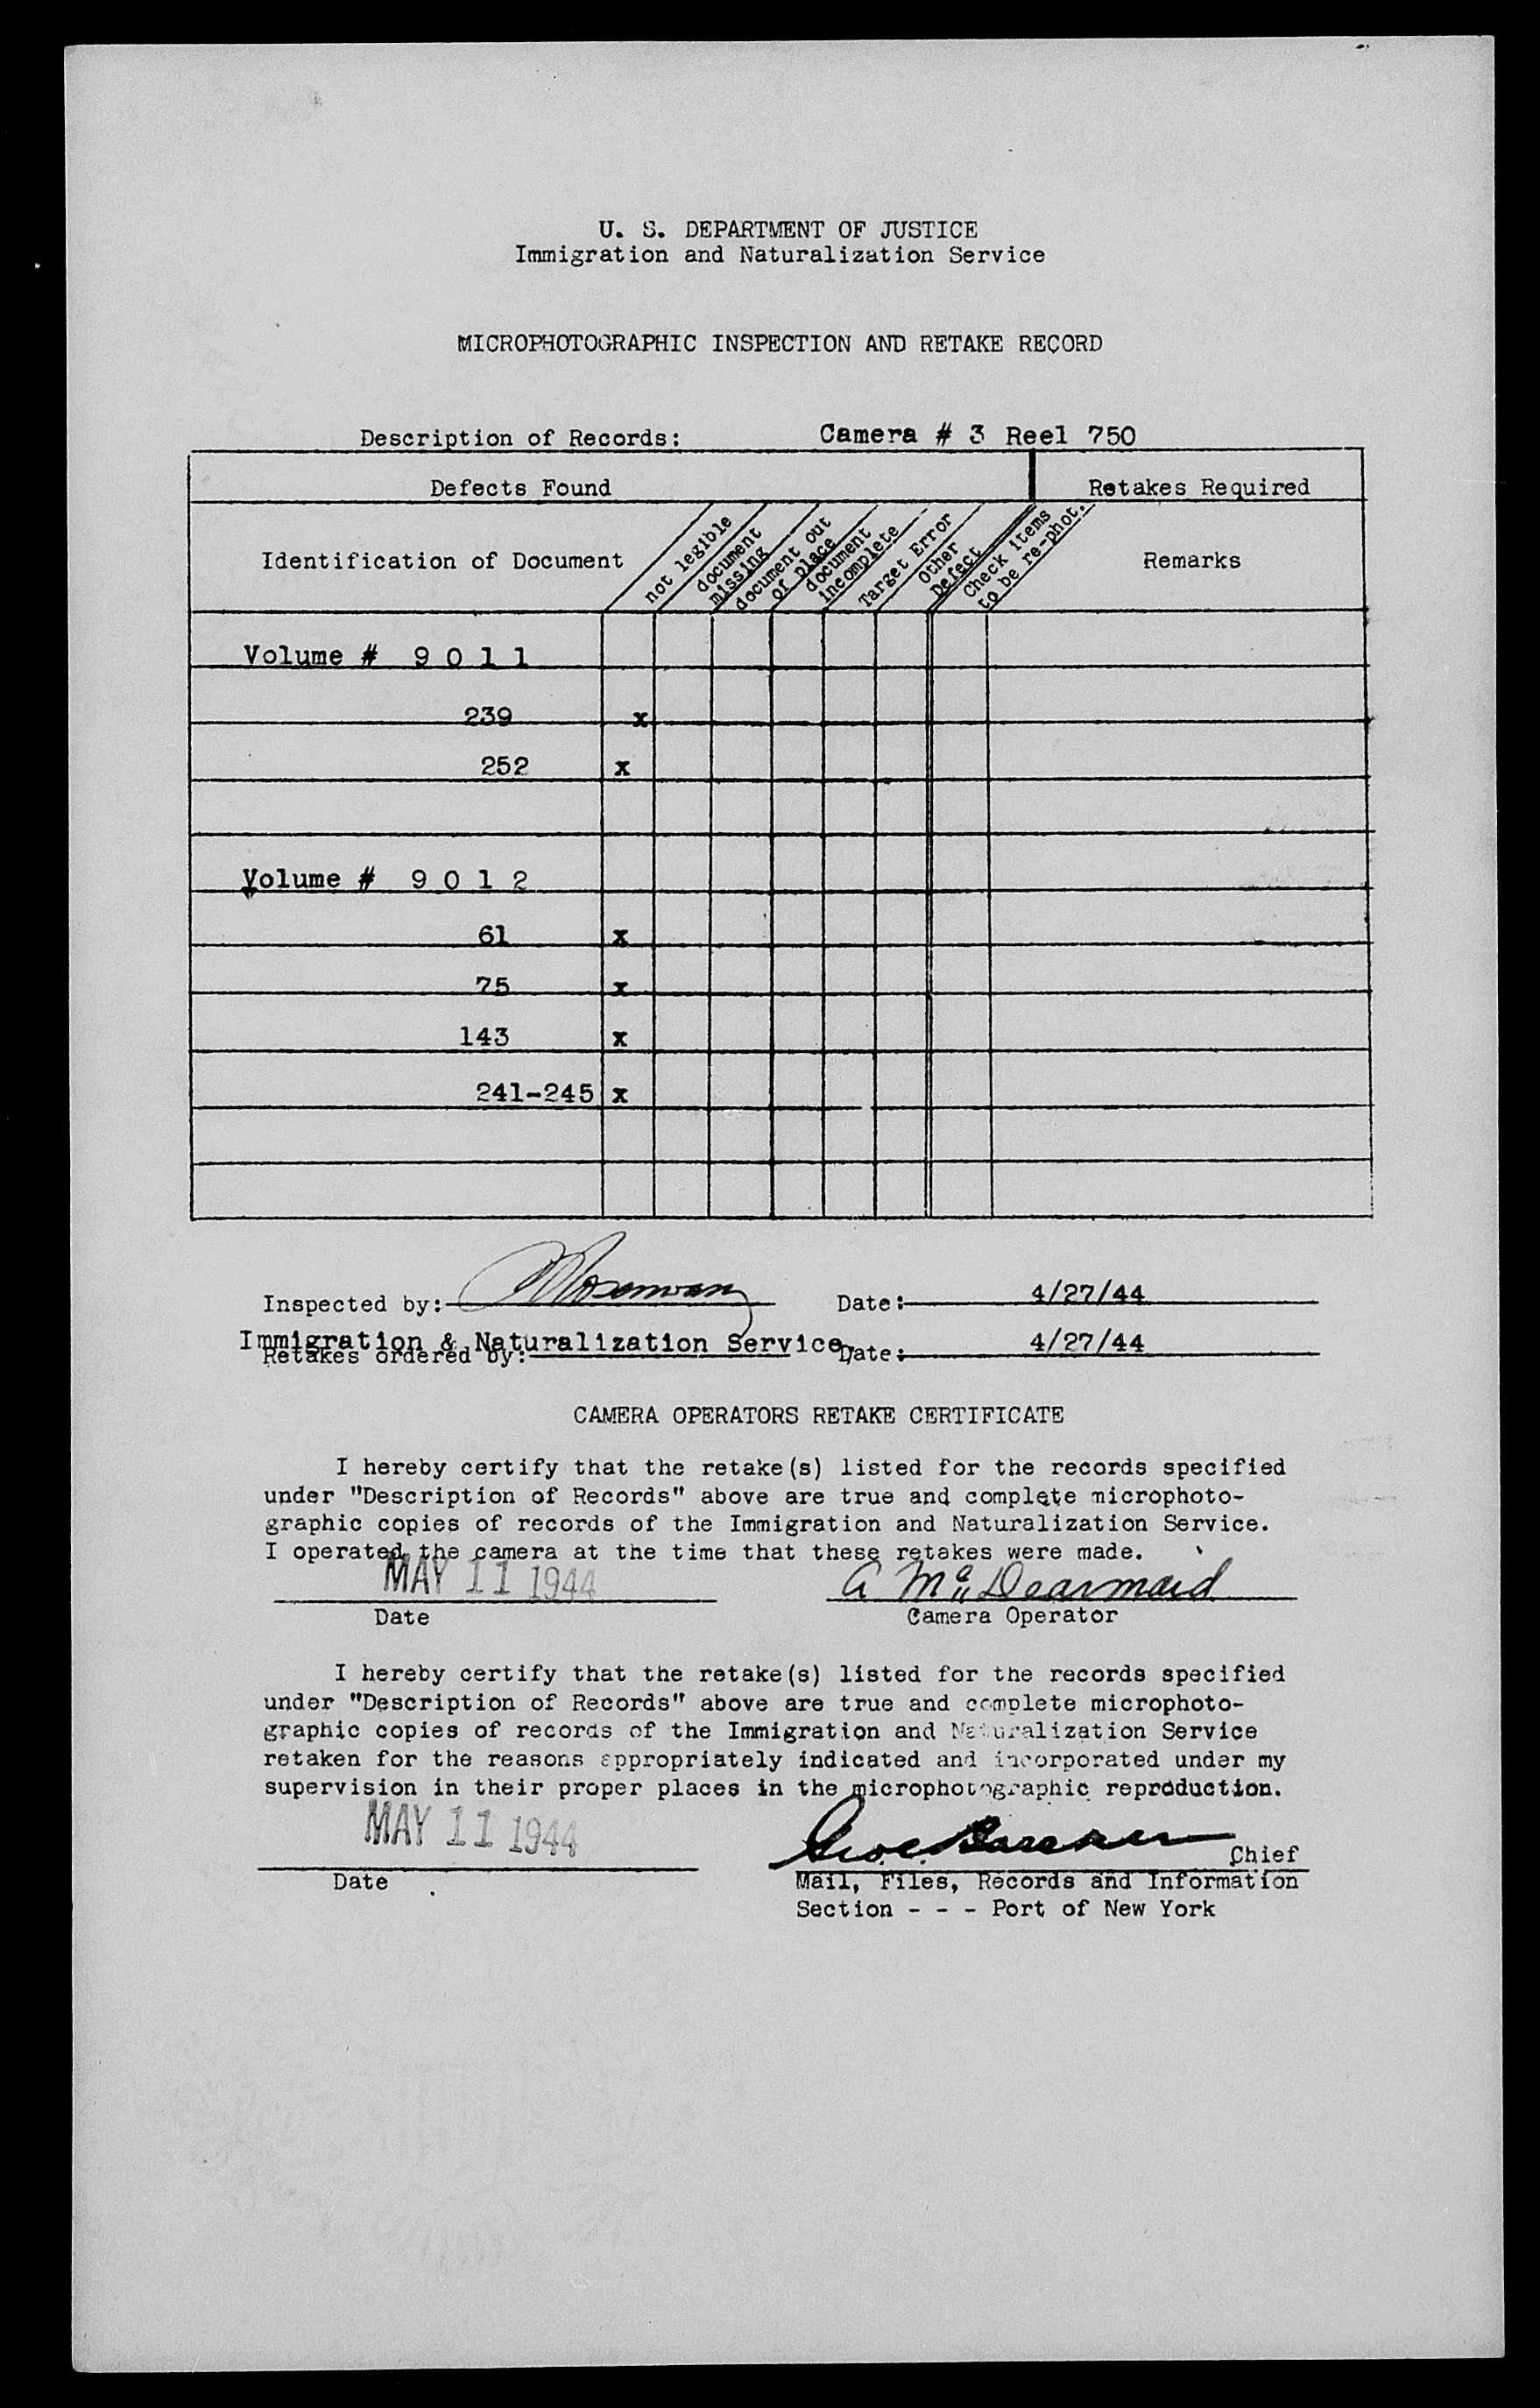 U. S. DEPARTMENT OF JUSTICE
Immigration and Naturalization Service
MICROPHOTOGRAPHIC INSPECTION AND RETAKE RECORD
Description of Records: Camera # 3 Reel 750
Defects Found
Retakes Required
Identification of Document
not legible
document
missing
document out
of place
document
incomplete
Target Error
Other
Defect
Check items
to be re-phot.
Remarks
Volume # 9 0 1 1
239 x
252 x
Volume # 9 0 1 2
61 x
75 x
143 x
241-245 x
Inspected by: Date: 4/27/44
Immigration & Naturalization Service
Retakes ordered by: Date: 4/27/44
CAMERA OPERATORS RETAKE CERTIFICATE
I hereby certify that the retake(s) listed for the records specified
under "Description of Records" above are true and complete microphoto-
graphic copies of records of the Immigration and Naturalization Service.
I operated the camera at the time that these retakes were made.
MAY 11 1944
Date
Camera Operator
I hereby certify that the retake(s) listed for the records specified
under "Description of Records" above are true and complete microphoto-
graphic copies of records of the Immigration and Naturalization Service
retaken for the reasons appropriately indicated and incorporated under my
supervision in their proper places in the microphotographic reproduction.
MAY 11 1944
Chief
Date
Mail, Files, Records and Information
Section - - - Port of New York